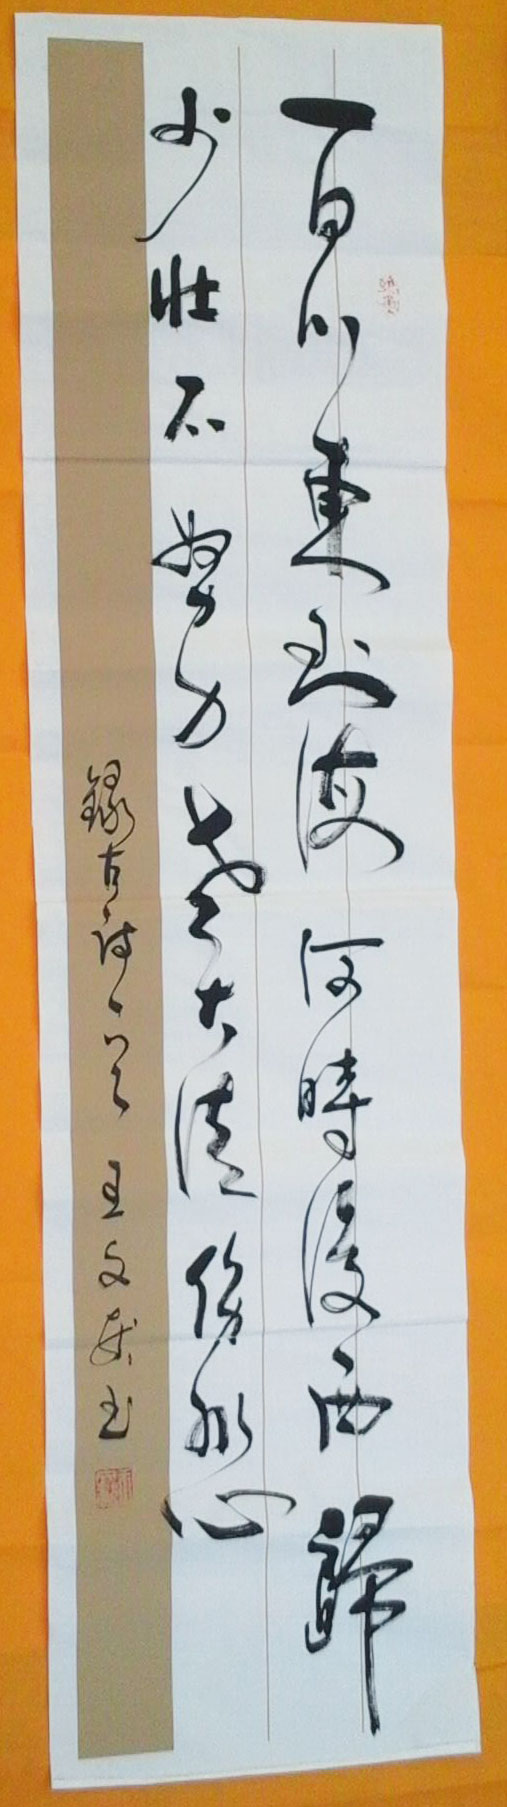 百川東到海何時復西歸
少壯不努力老大徒傷悲
錄古詩 王文 書